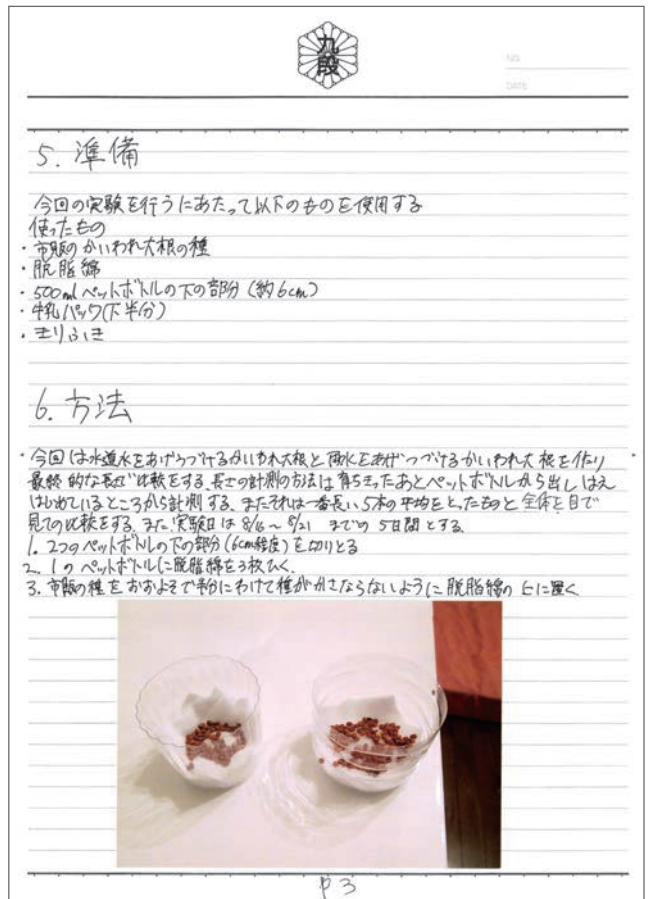 九段
NO.
DATE
5. 準備
今回の実験を行うにあたって以下のものを使用する
使ったもの
・市販のかいわれ大根の種
・脱脂綿
・500ml ペットボトルの下の部分（約6cm）
・牛乳パック(下半分)
・きりふき
6. 方法
・今回は水道水をあげつづけるかいわれ大根と雨水をあげつづけるかいわれ大根を作り
最終的な長さで比較をする。長さの計測の方法は育ちきったあとペットボトルから出しはえ
はじめているところから計測する。またそれは一番長い5本の平均をとったものと全体を目で
見ての比較をする。また、実験日は 8/16～8/21 までの5日間とする
1. 2つのペットボトルの下の部分(6cm程度)を切りとる
2. 1のペットボトルに脱脂綿を3枚ひく
3. 市販の種をおおよそで半分にわけて種がかさならないように脱脂綿の上に置く
P3